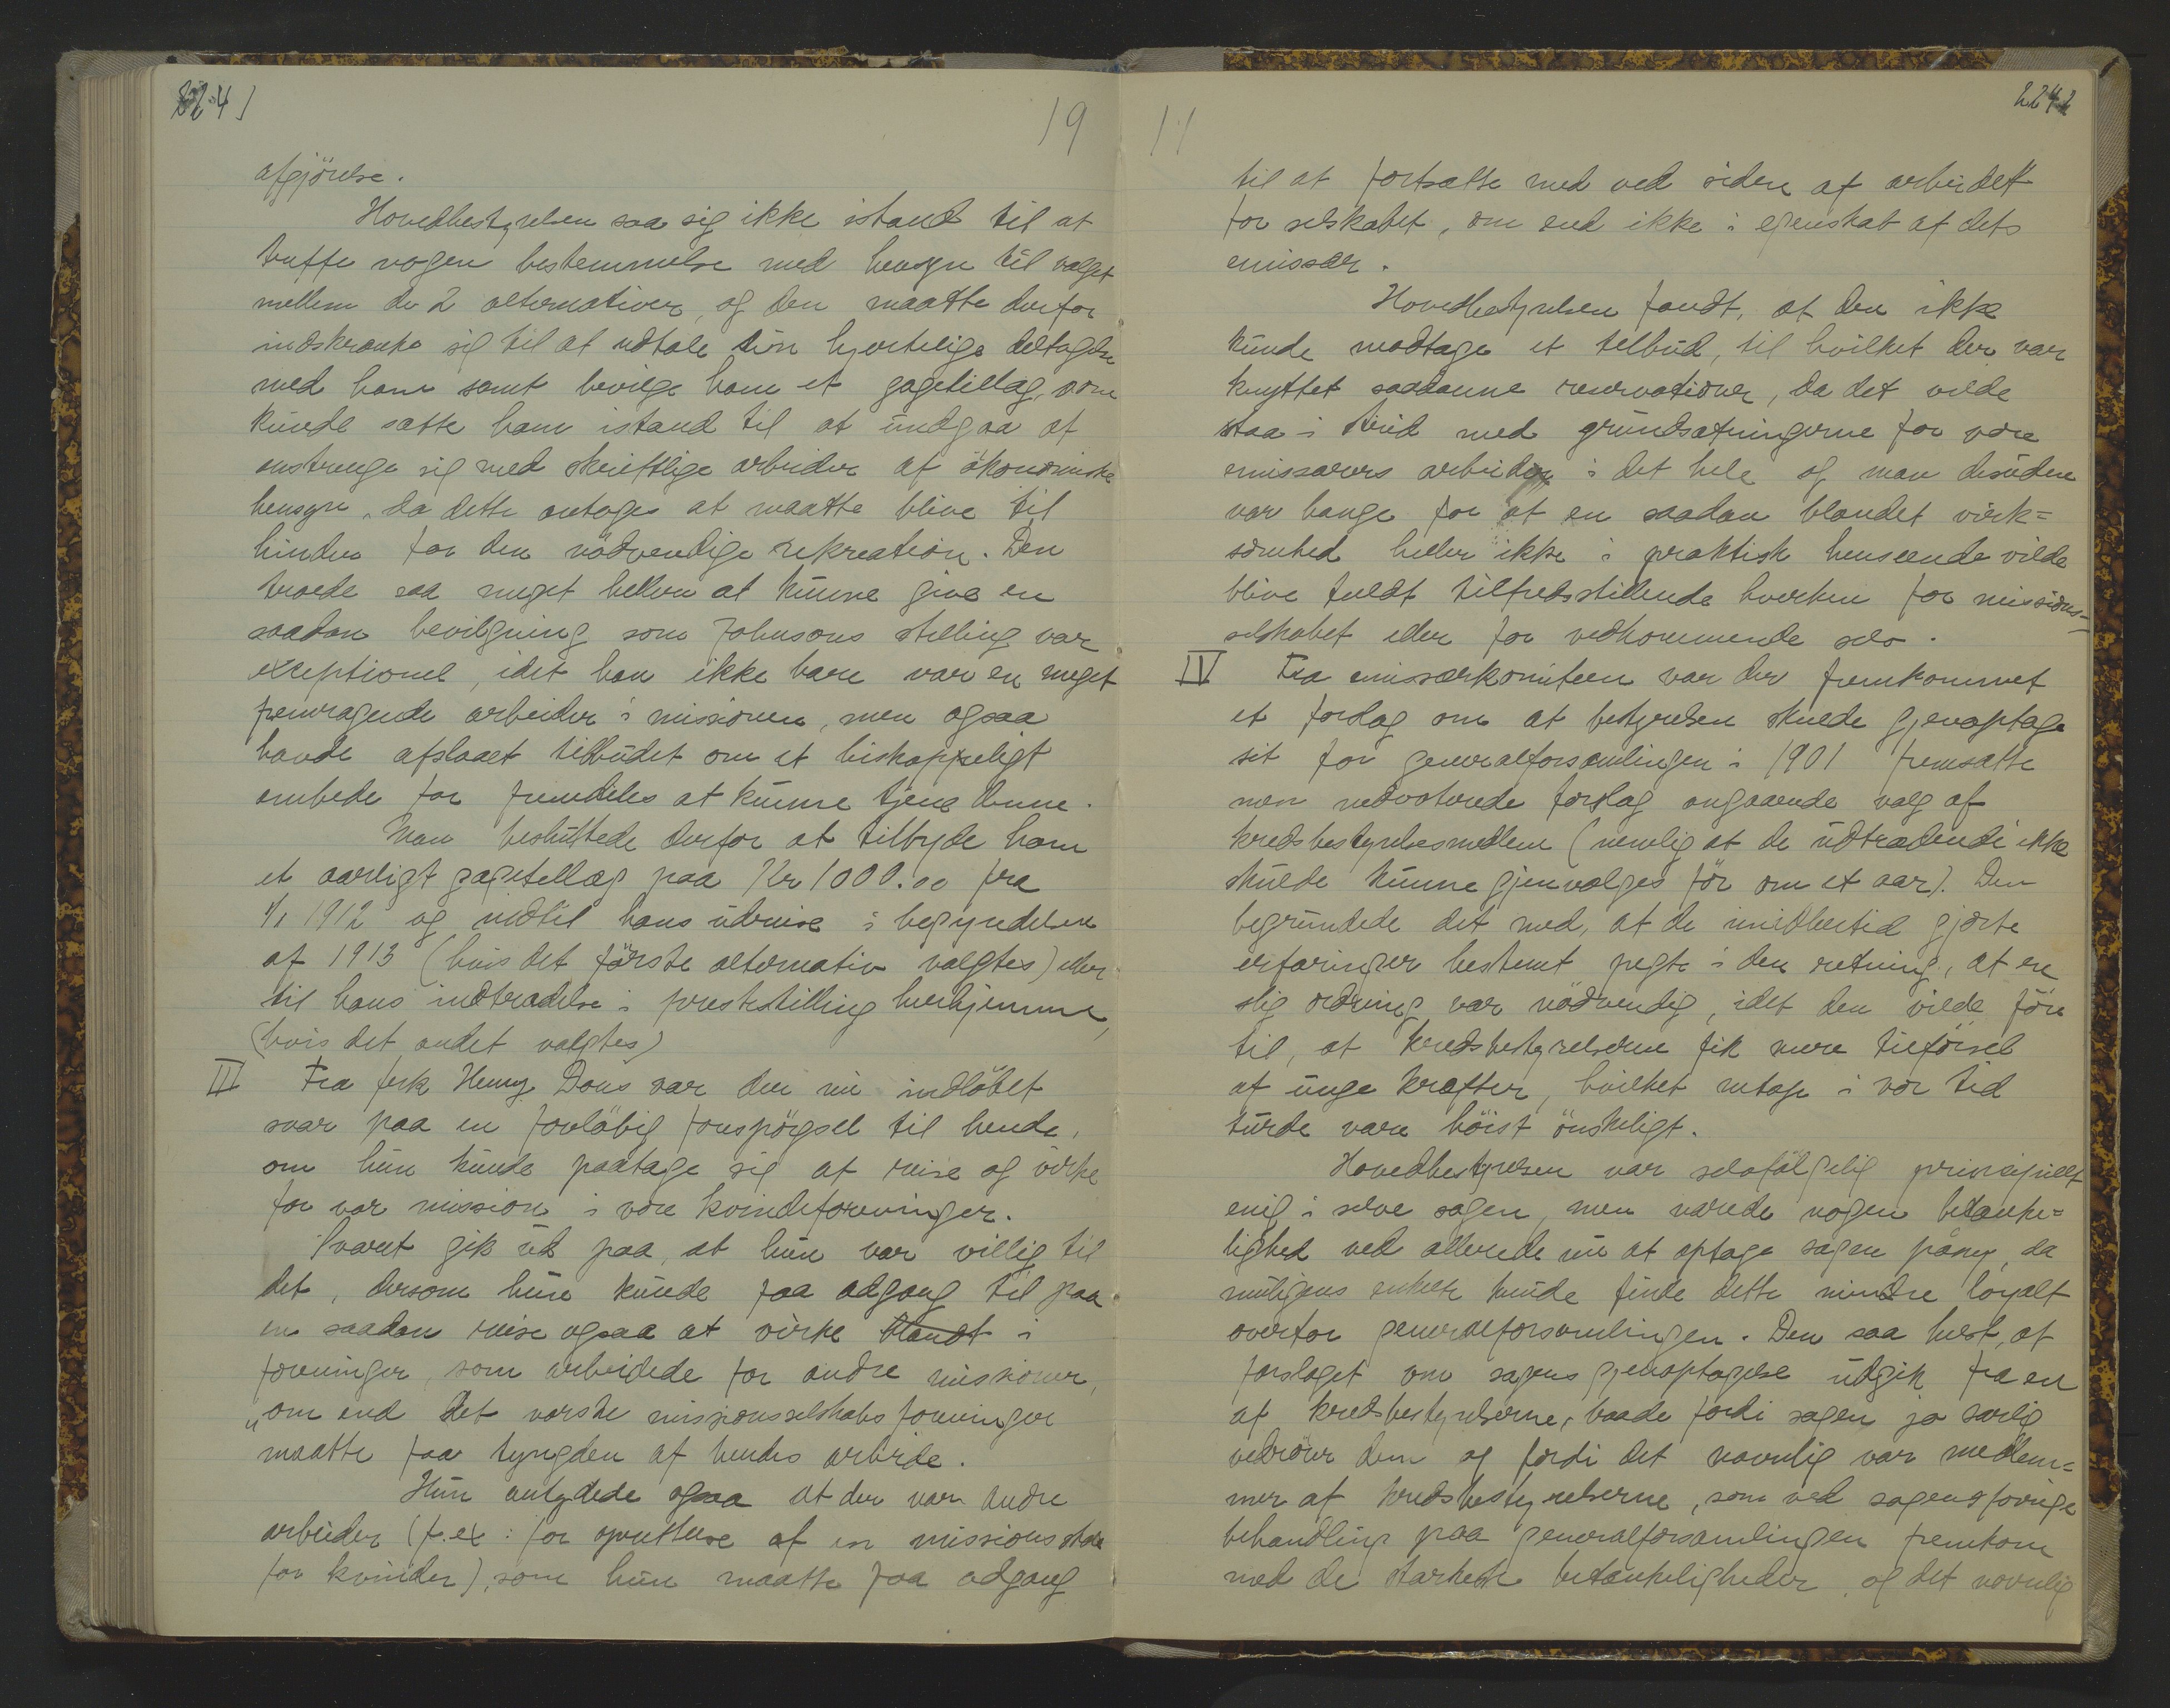 2241
19
afgjörelse.
Hovedbestyrelsen saa sig ikke istand til at
træffe nogen bestemmelse med hensyn til valget
mellem de 2 alternativer, og den maatte derfor
indskrænke sig til at udtale sin hjertelige deltagelse
med ham samt bevilge ham et gagetillæg, som
kunde sætte ham istand til at undgaa at
anstrenge sig med skriftlige arbeider af ökonomiske
hensyn, da dette antoges at maatte blive til
hinder for den nödvendige rekreation. Den
troede saa meget hellere at kunne give en
saadan bevilgning som Johnsons stilling var
exceptionel, idet han ikke bare var en meget
fremragende arbeider i missionen, men ogsaa
havde afslaaet tilbudet om et biskoppeligt
embede for fremdeles at kunne tjene denne.
Man besluttede derfor at tilbyde ham
et aarligt gagetillæg paa Kr 1000.00 fra
1/1 1912 og indtil hans udreise i begyndelsen
af 1913 (hvis det förste alternativ valgtes) eller
til hans indtrædelse i prestestilling herhjemme,
(hvis det andet valgtes)
II Fra frk Henny Dons var der nu indlöbet
svar paa en forelöbig forespörgsel til hende,
om hun kunde paatage sig at reise og virke
for vor mission i vore kvindeforeninger.
Svaret gik ud paa, at hun var villig til
det, dersom hun kunde faa adgang til paa
en saadan reise ogsaa at virke blandt i
foreninger, som arbeidede for andre missioner,
"om end det norske missionsselskabs foreninger
maatte faa tyngden af hendes arbeide.
Hun antydede ogsaa at der var andre
arbeider (f.ex: for oprettelse af en missionsskole
for kvinder), som hun maatte faa adgang
11
2242
til at fortsætte med ved siden af arbeidet"
for selskabet, om end ikke i egenskab af dets
emissær.
Hovedbestyrelsen fandt, at den ikke
kunde modtage et tilbud, til hvilket der var
knyttet saadanne reservationer, da det vilde
staa i strid med grundsætningerne for vore
emissærers arbeider i det hele og man desuden
var bange for at en saadan blandet virk=
somhed heller ikke i praktisk henseende vilde
blive fuldt tilfredsstillende hverken for missions=
selskabet eller for vedkommende selv.
IV Fra emissærkomiteen var der fremkommet
et forslag om at bestyrelsen skulde gjenoptage
sit for generalforsamlingen i 1901 fremsatte
men nedvoterede forslag angaaende valg af
kredsbestyrelsesmedlem (nemlig at de udtrædende ikke
skulde kunne gjenvælges för om et aar). Den
begrundede det med, at de imidlertid gjorte
erfaringer bestemt pegte i den retning, at en
slig ordning var nödvendig, idet den vilde före
til, at kredsbestyrelserne fik mere tilförsel
af unge kræfter, hvilket netop i vor tid
turde være höist önskeligt.
Hovedbestyrelsen var selvfölgelig principielt
enig i selve sagen, men nærede nogen betænke=
lighed ved allerede nu at optage sagen påny, da
muligens enkelte kunde finde dette mindre loyalt
overfor generalforsamlingen. Den saa helst, at
forslaget om sagens gjenoptagelse udgik fra en
af kredsbestyrelserne, baade fordi sagen jo særlig
vedrörer dem og fordi det navnlig var medlem=
mer af kredsbestyrelserne, som ved sagens forrige
behandling paa generalforsamlingen fremkom
med de stærkeste betænkeligheder, og det navnlig